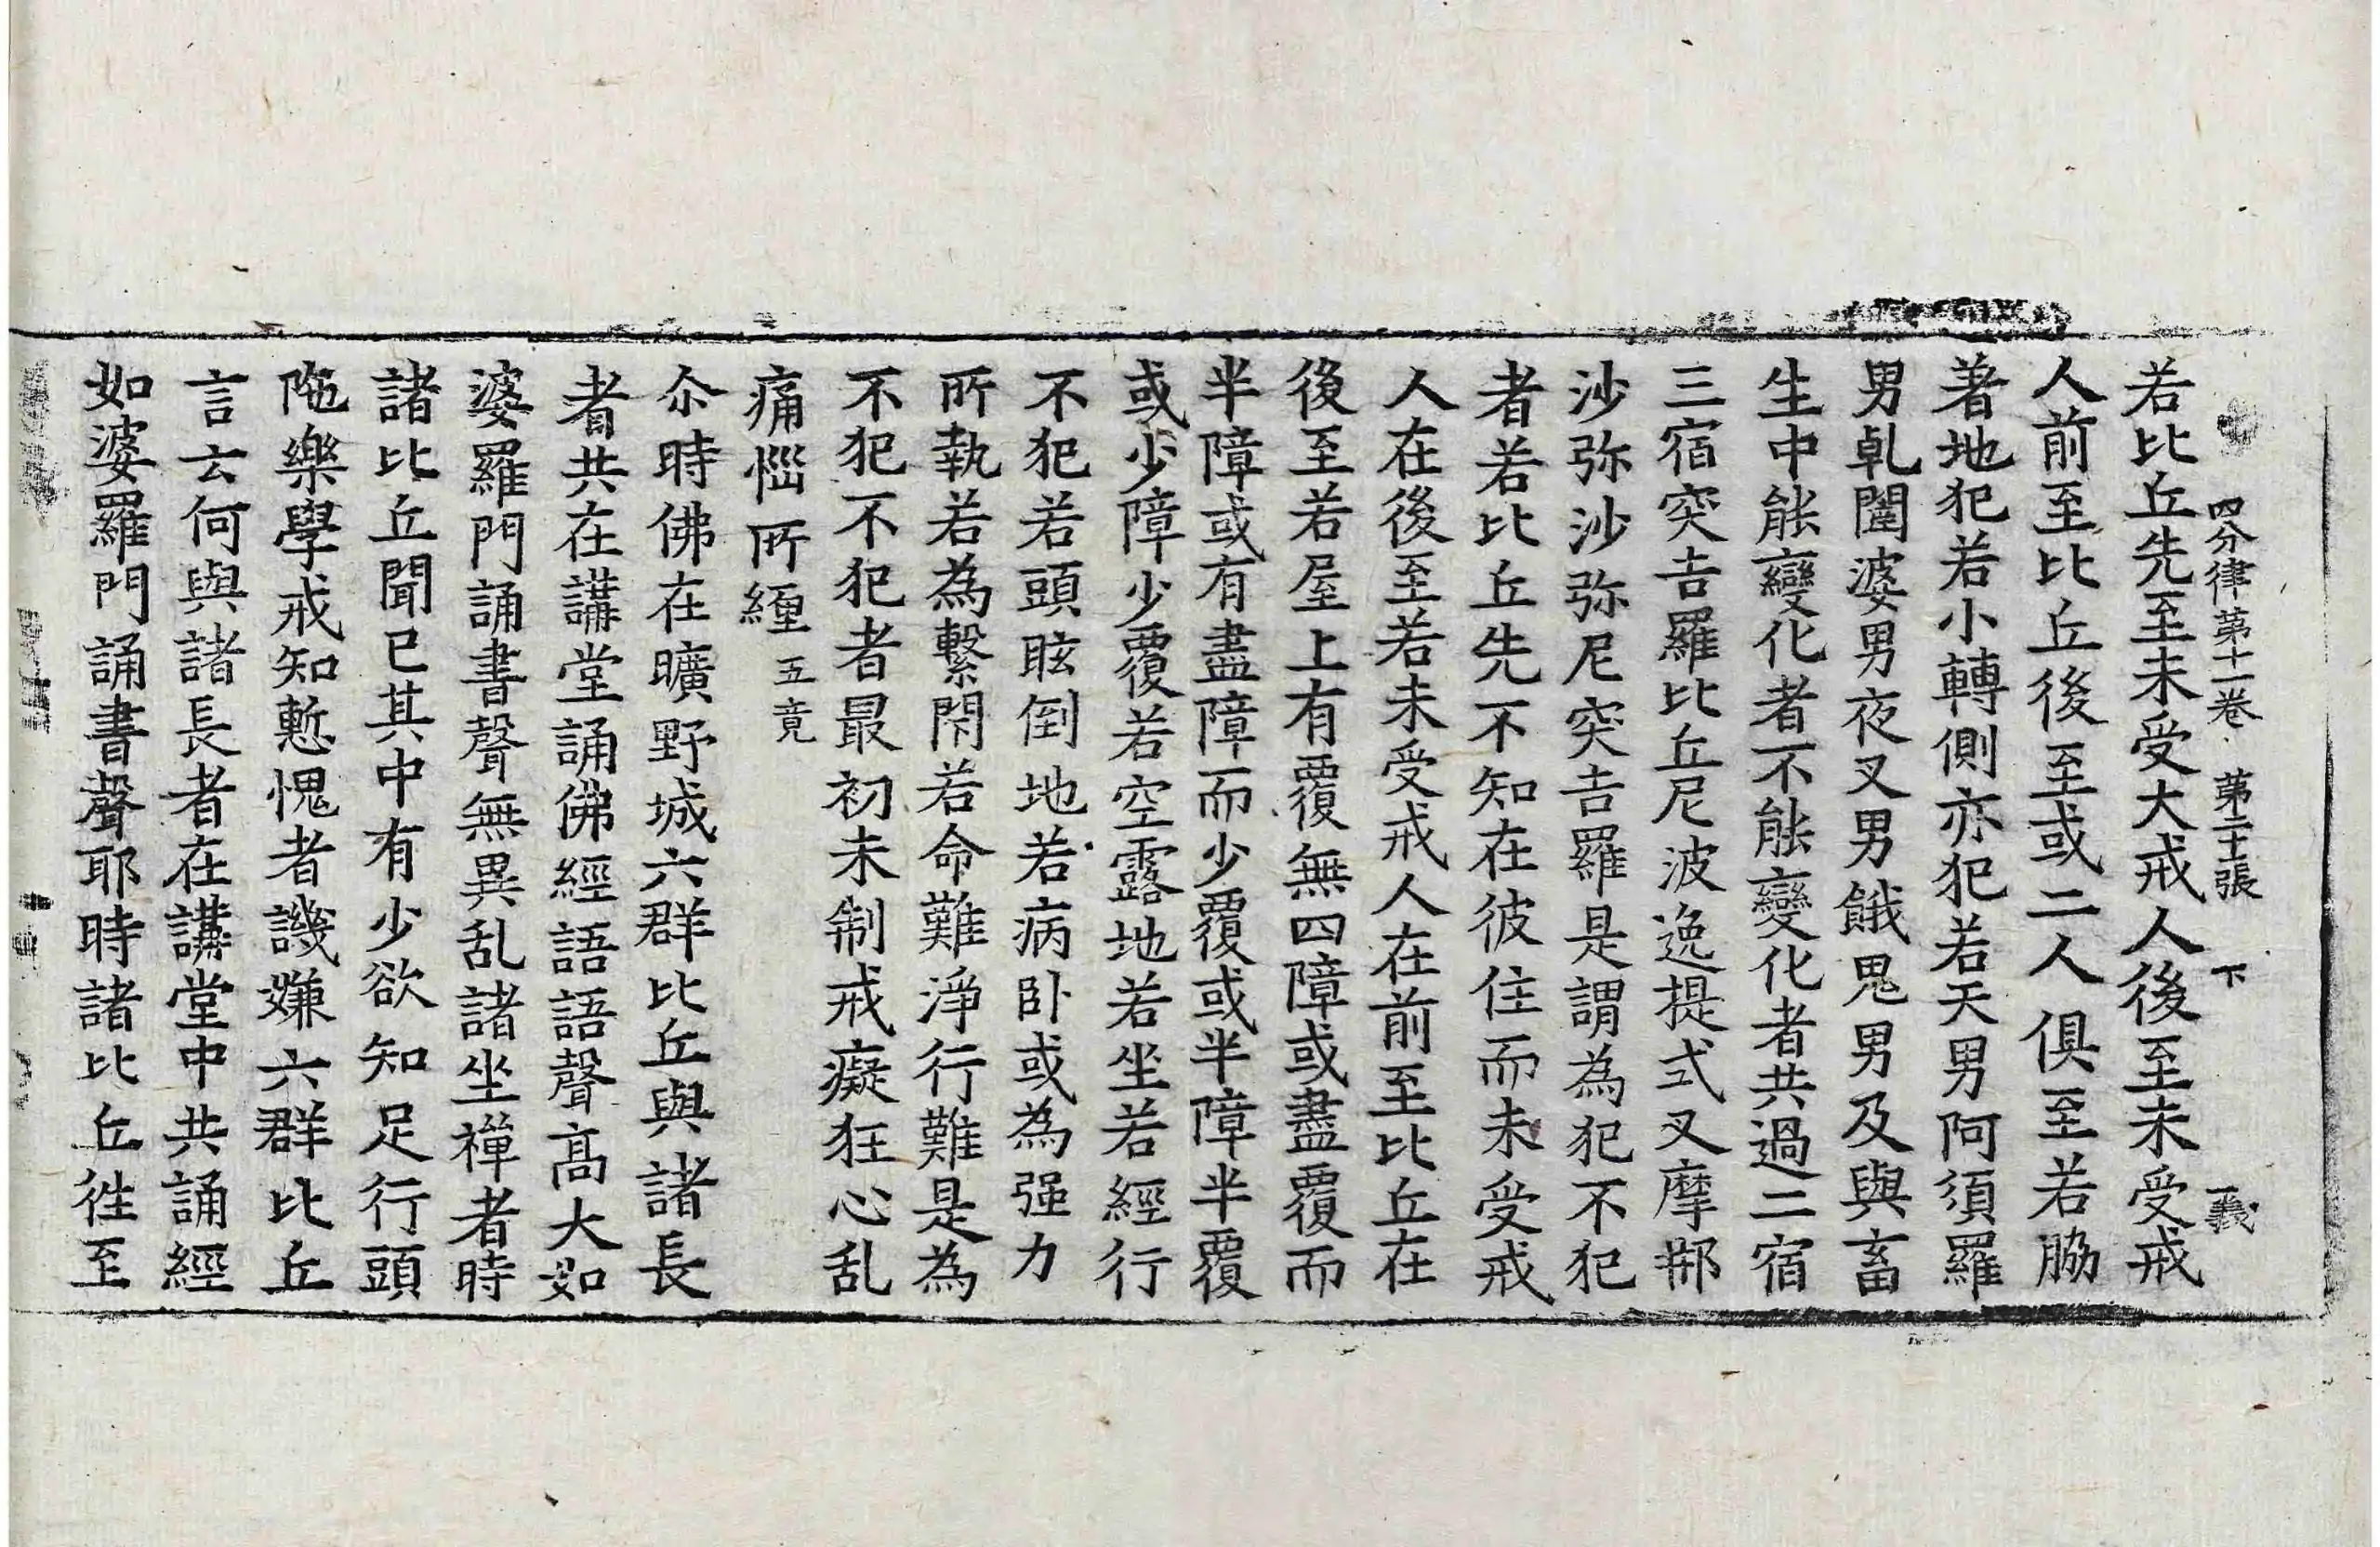 四分律第十一卷 第二十張 下 義
若比丘先至未受大戒人後至未受戒
人前至比丘後至或二人俱至若脇
著地犯若小轉側亦犯若天男阿須羅
男乹闥婆男夜叉男餓鬼男及與畜
生中能變化者不能變化者共過二宿
三宿突吉羅比丘尼波逸提式叉摩那
沙弥沙弥尼突吉羅是謂為犯不犯
者若比丘先不知在彼住而未受戒
人在後至若未受戒人在前至比丘在
後至若屋上有覆無四障或盡覆而
半障或有盡障而少覆或半障半覆
或少障少覆若空露地若坐若經行
不犯若頭眩倒地若病卧或為强力
所執若為繫閇若命難淨行難是為
不犯不犯者最初未制戒癡狂心乱
痛惱所纒 五竟
尒時佛在曠野城六群比丘與諸長
者共在講堂誦佛經語語聲高大如
婆羅門誦書聲無異乱諸坐禪者時
諸比丘聞已其中有少欲知足行頭
陁樂學戒知慙愧者譏嫌六群比丘
言云何與諸長者在講堂中共誦經
如婆羅門誦書聲耶時諸比丘徃至